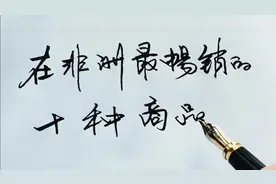 在非洲最暢销的
十种商品